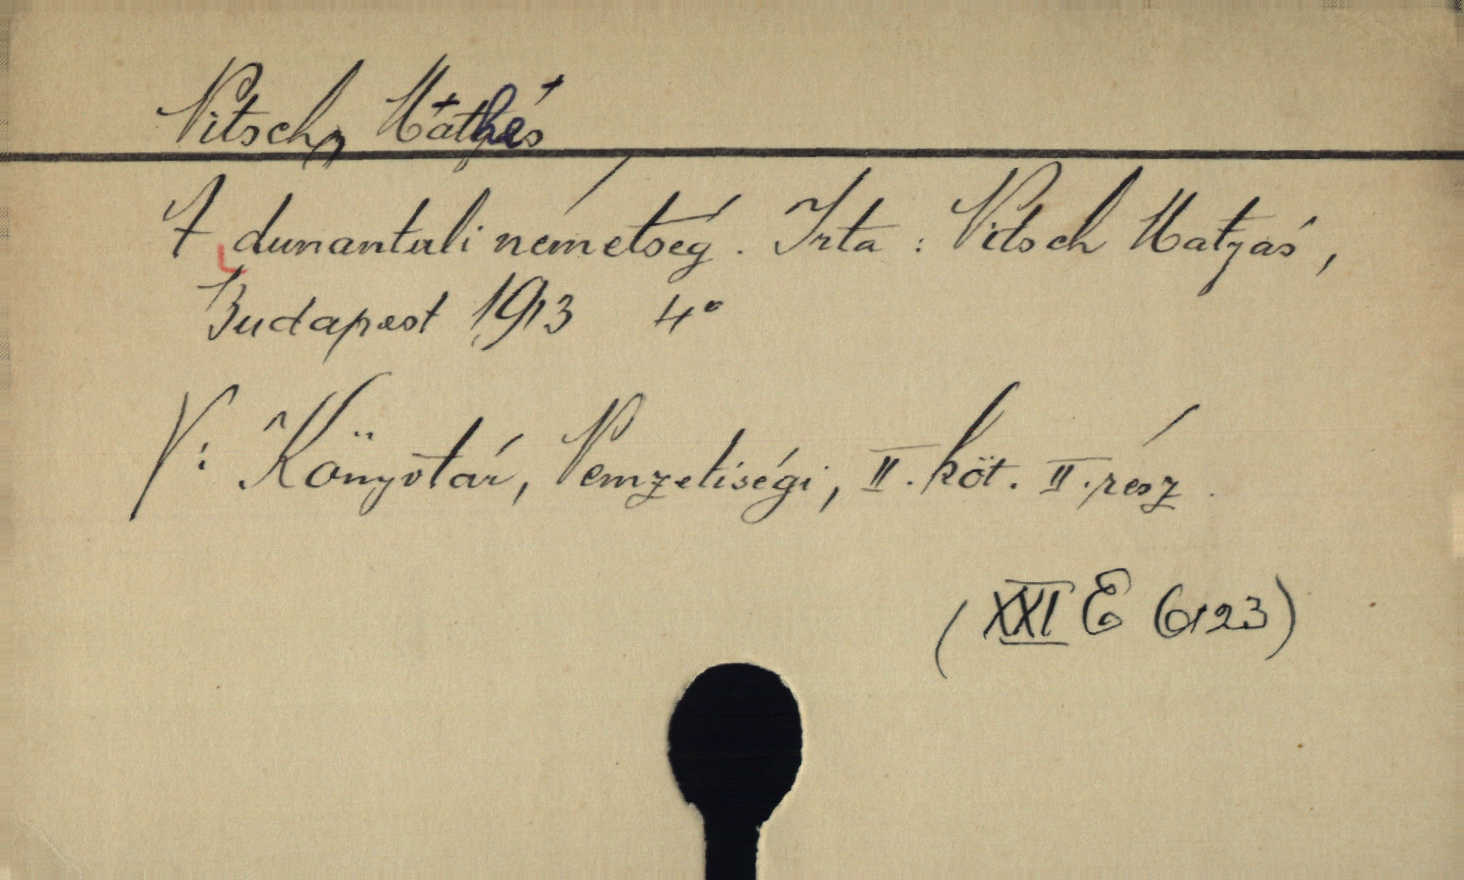 Nitsch, Máthés
A dunántuli németség. Irta: Nitsch Mátyás,
Budapest 1913 4°
V: Könyvtár, Nemzetiségi, II. köt. II. rész.
(XXI E 6123)